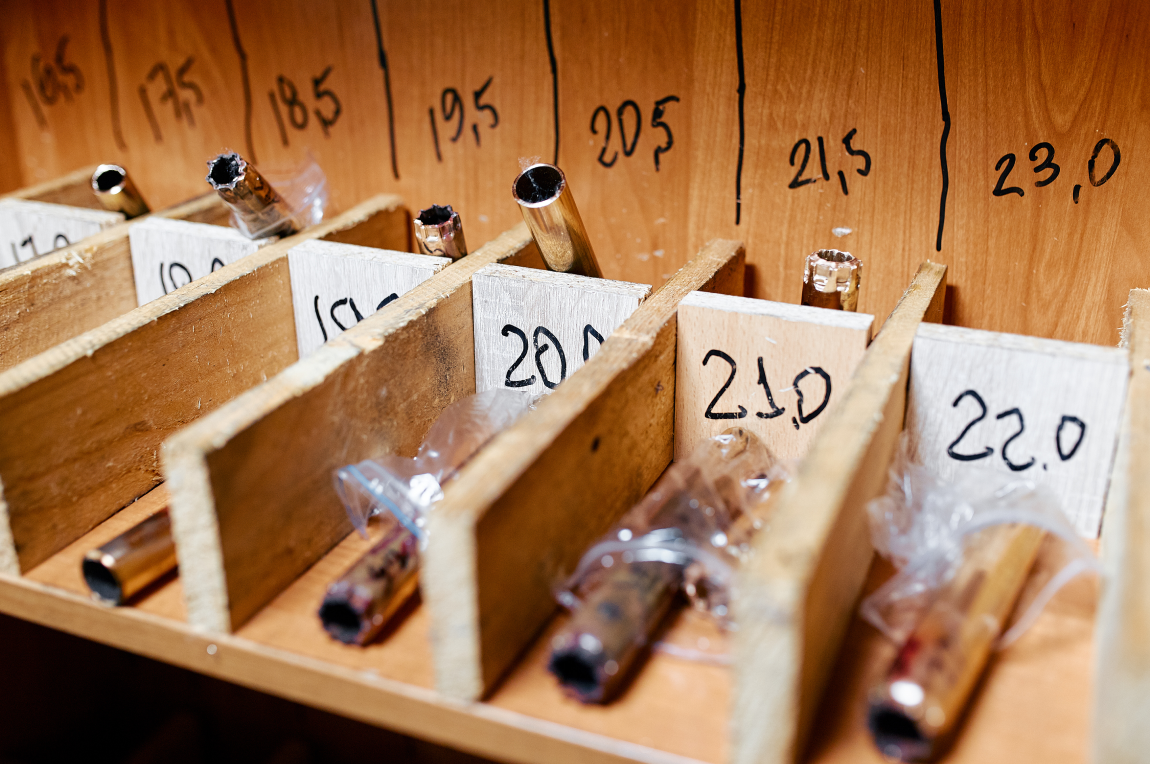 16,5
17,5
18,5
19,5
20,5
21,5
23,0
17,0
18,0
19,0
20,0
21,0
22.0